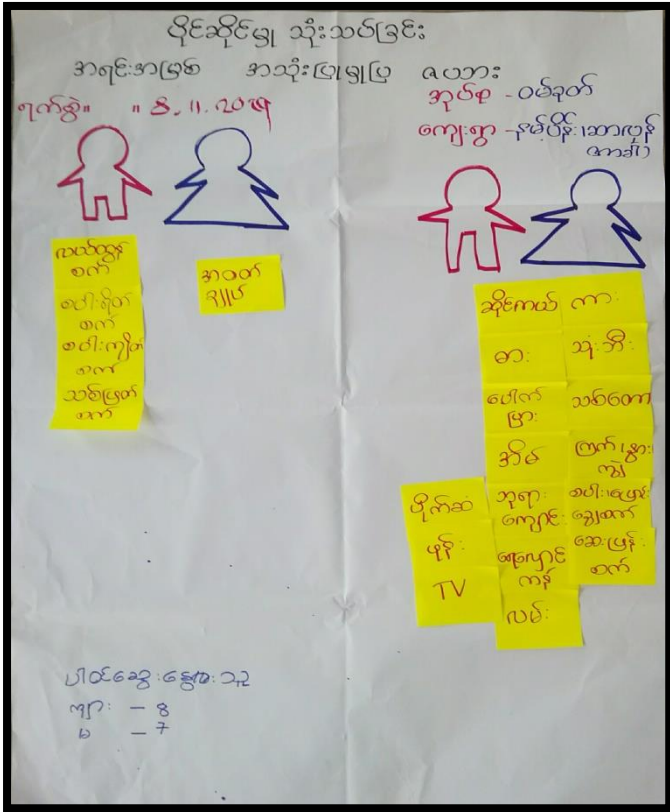 ပိုင်ဆိုင်မှု သုံးသပ်ခြင်း
အရင်းအမြစ် အသုံးပြုမှုပြ ဇယား
ရက်စွဲ။ ။ 8.11.2019
အုပ်စု - ဝမ်ခုတ်
ကျေးရွာ - နမ့်ပိန်း၊
လယ်ထွန်
စက်
စပါးရိတ်
စက်
စပါးကျိတ်
စက်
သစ်ဖြတ်
စက်
အဝတ်
ချုပ်
ဆိုင်ကယ်
ကား
ဓား
သုံးဘီး
ပေါက်
ပြား
သစ်တော
အိမ်
ကြက်၊ နွား၊
ကျွဲ
ဘုရား
ကျောင်း
စပါး၊ပြောင်း
ချွေစက်
ရေလှောင်
ကန်
ဆေးဖြန်း
စက်
လမ်း
ပိုက်ဆံ
ဖုန်း
TV
ပါဝင်ဆွေးနွေးသူ
ကျား - 8
မ - 7